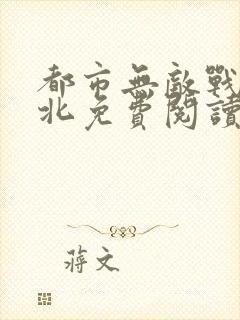 都市無敵戰
北免費閱讀
蔣文